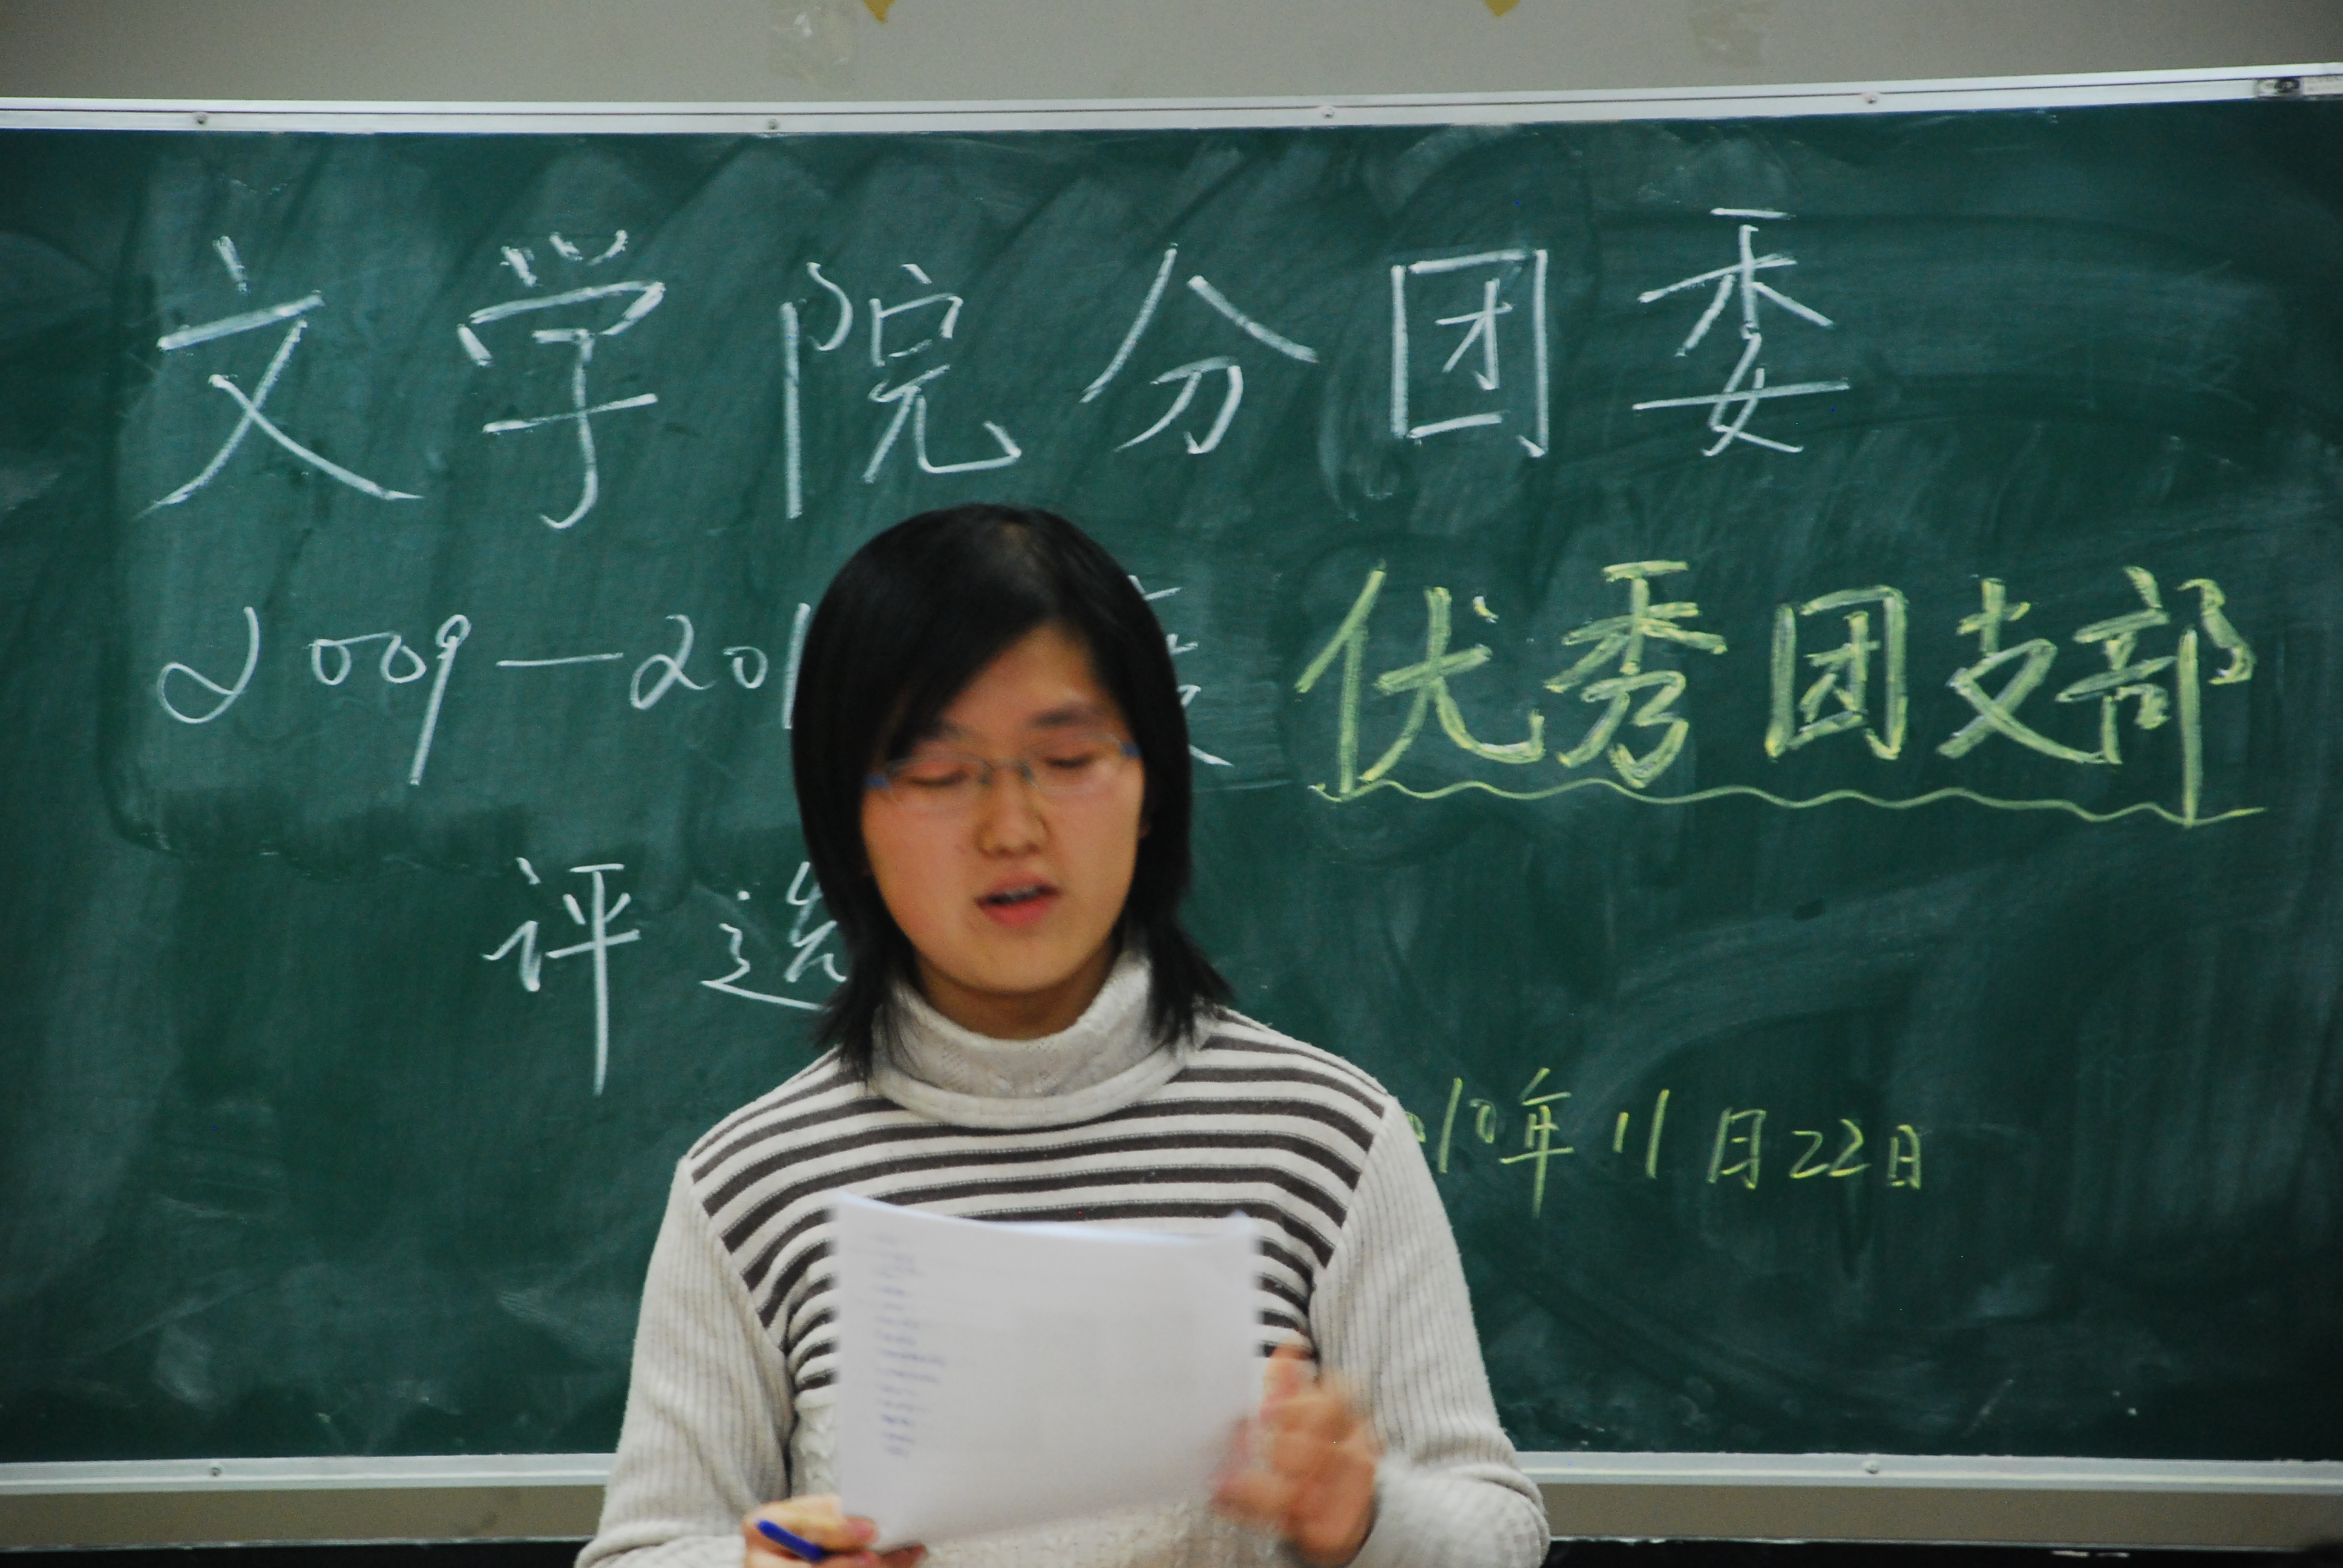 文学院分团委
2009—201 优秀团支部
评选
010年11月22日